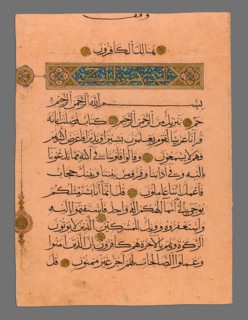 وقف
هنالك الكافرون
بسم الله الرحمن الرحيم
حم تنزيل من الرحمن الرحيم كتاب فصلت اياته
قرآنا عربيا لقوم يعلمون بشيرا ونذيرا فاعرض اكثرهم
فهم لا يسمعون وقالوا قلوبنا في اكنة مما تدعونا
اليه وفي اذاننا وقر ومن بيننا وبينك حجاب
فاعمل اننا عاملون قل انما انا بشر مثلكم
يوحى الي انما الهكم اله واحد فاستقيموا اليه
واستغفروه وويل للمشركين الذين لا يؤتون
الزكوة وهم بالاخرة هم كافرون ان الذين امنوا
وعملوا الصالحات لهم اجر غير ممنون قل